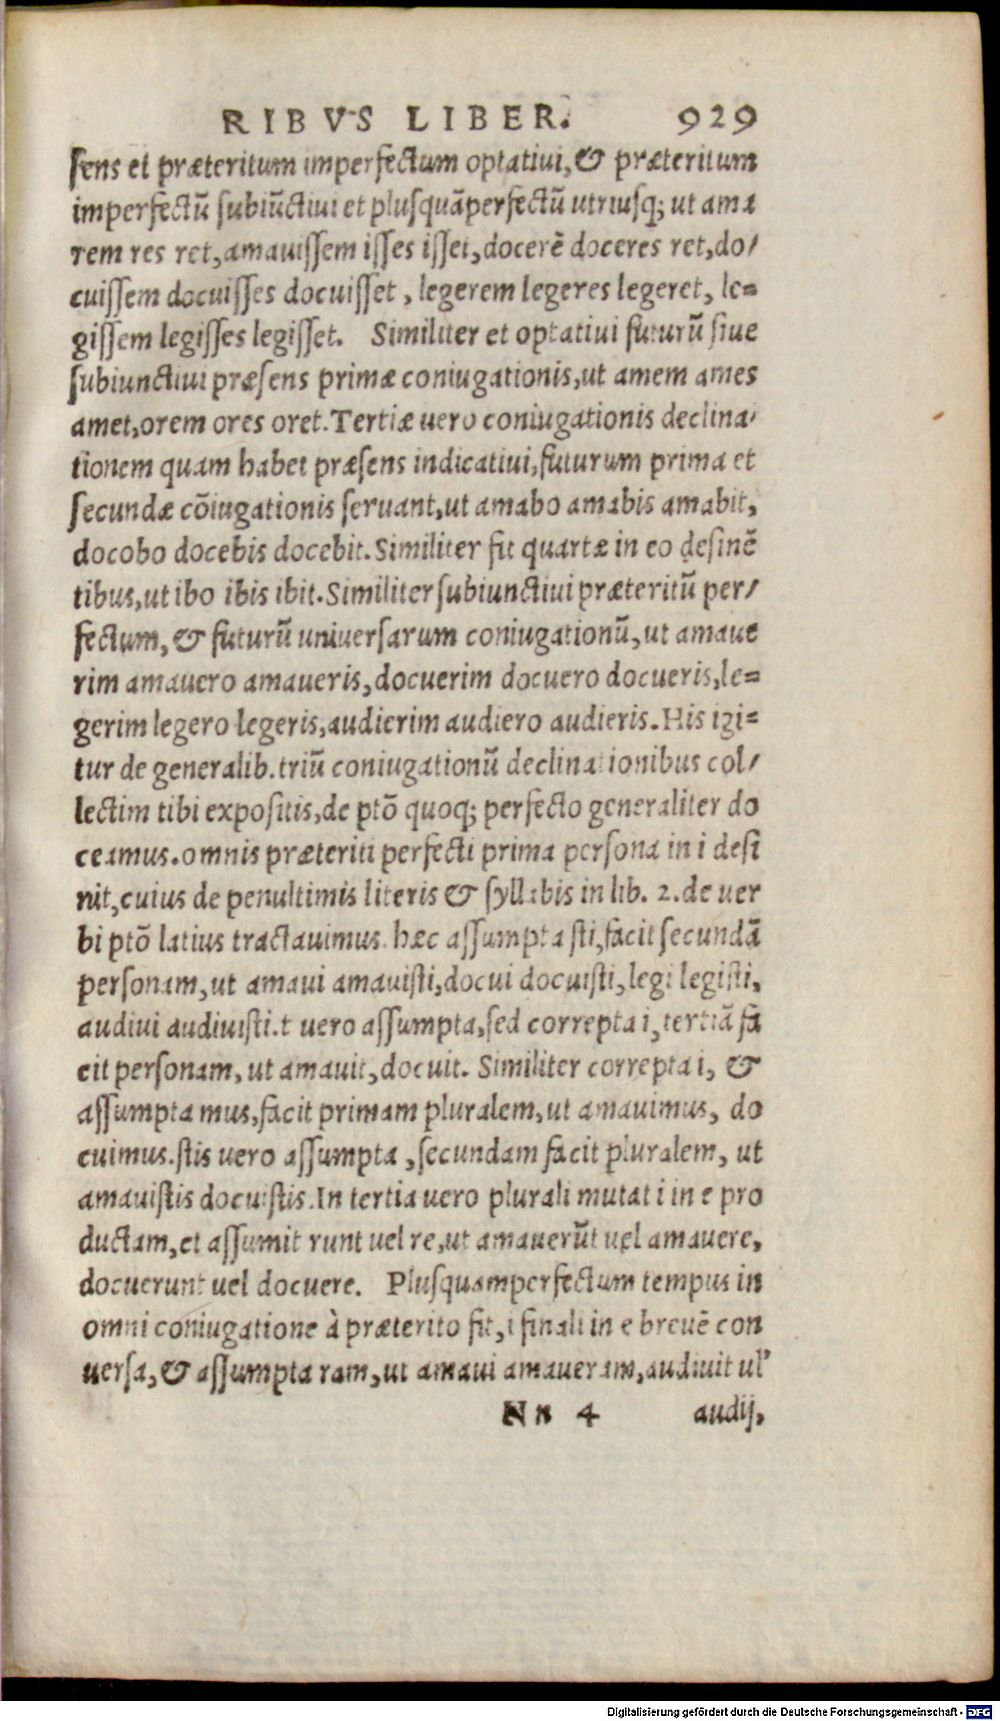 RIBVS LIBER. 929
ſens et præteritum imperfectum optatiui, & præteritum
imperfectū ſubiūctiui et pluſquāperfectū utriusq; ut ama
rem res ret, amauiſſem iſſes iſſet, docerē doceres ret, do/
cuiſſem docuiſſes docuiſſet, legerem legeres legeret, le=
giſſem legiſſes legiſſet. Similiter et optatiui futurū ſiue
ſubiunctiui præſens primæ coniugationis, ut amem ames
amet, orem ores oret. Tertiæ uero coniugationis declina/
tionem quam habet præſens indicatiui, futurum prima et
ſecundæ cōiugationis ſeruant, ut amabo amabis amabit,
docobo docebis docebit. Similiter fit quartæ in eo deſinē
tibus, ut ibo ibis ibit. Similiter ſubiunctiui præteritū per/
fectum, & futurū uniuerſarum coniugationū, ut amaue
rim amauero amaueris, docuerim docuero docueris, le=
gerim legero legeris, audierim audiero audieris. His igi=
tur de generalib. triū coniugationū declinationibus col/
lectim tibi expoſitis, de ptō quoq; perfecto generaliter do
ceamus. omnis præteriti perfecti prima perſona in i deſi
nit, cuius de penultimis literis & ſyllabis in lib. 2. de uer
bi ptō latius tractauimus. hæc aſſumpta ſti, facit ſecundā
perſonam, ut amaui amauiſti, docui docuiſti, legi legiſti,
audiui audiuiſti. t uero aſſumpta, ſed correpta i, tertiā fa
cit perſonam, ut amauit, docuit. Similiter correpta i, &
aſſumpta mus, facit primam pluralem, ut amauimus, do
cuimus. ſtis uero aſſumpta, ſecundam facit pluralem, ut
amauiſtis docuiſtis. In tertia uero plurali mutat i in e pro
ductam, et aſſumit runt uel re, ut amauerūt uel amauere,
docuerunt uel docuere. Pluſquamperfectum tempus in
omni coniugatione à præterito fit, i finali in e breuē con
uerſa, & aſſumpta ram, ut amaui amaueram, audiuit ul'
Nn 4 audij,
Digitalisierung gefördert durch die Deutsche Forschungsgemeinschaft - DFG